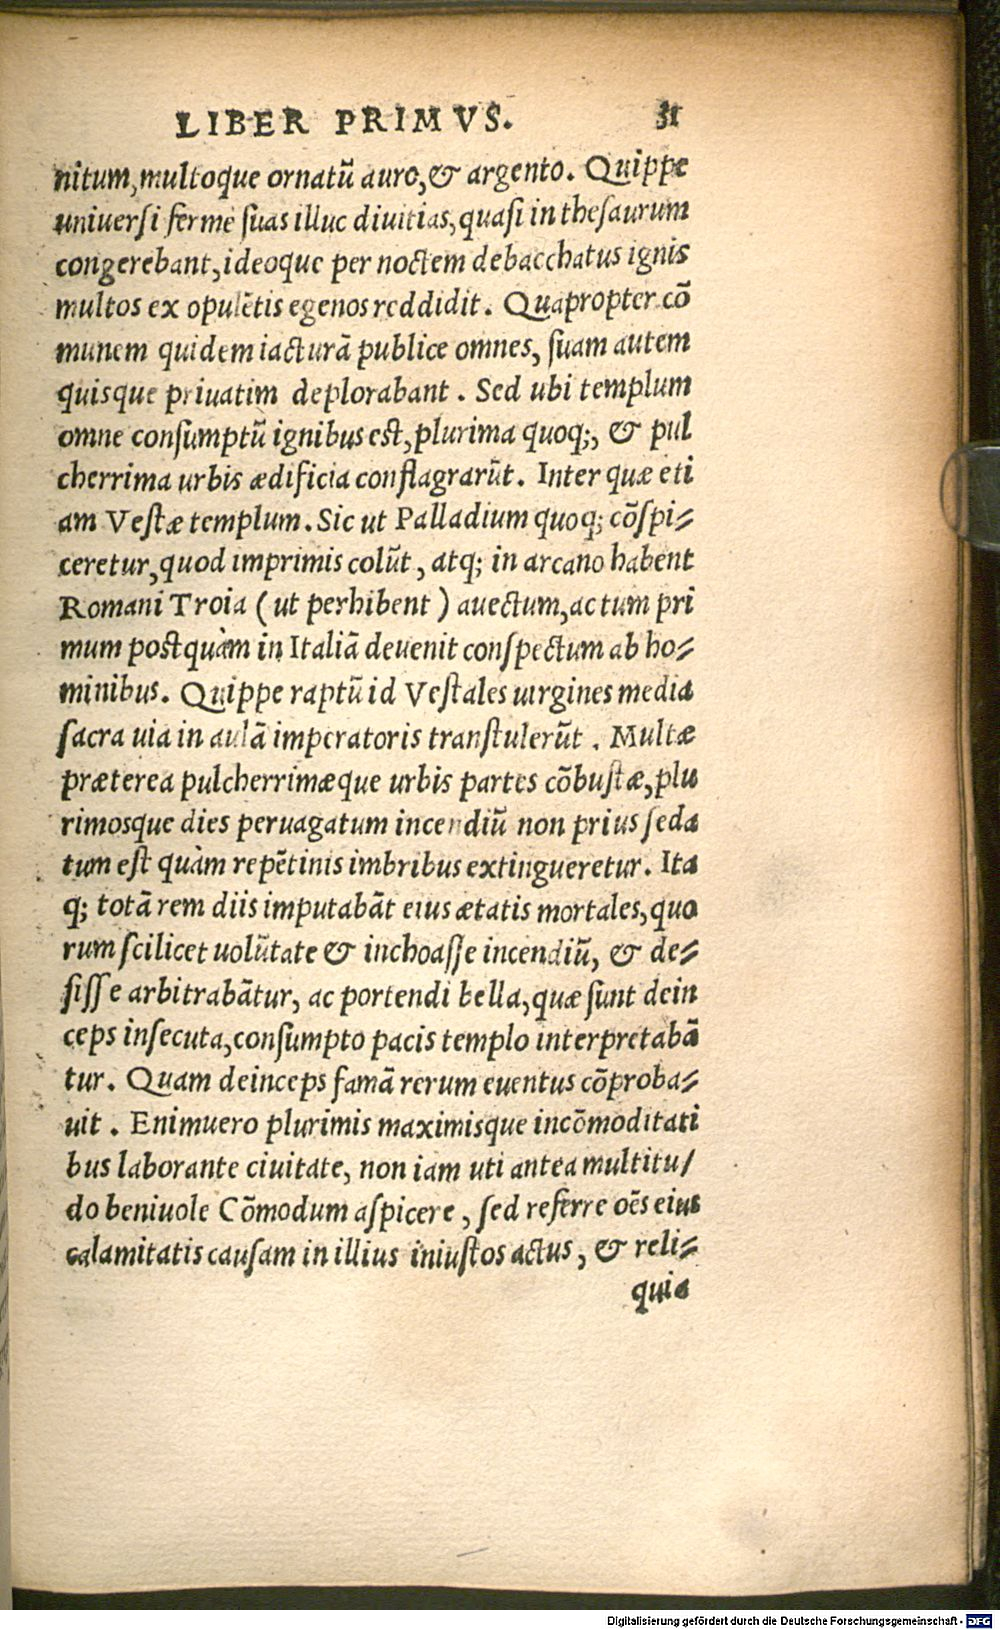 LIBER PRIMVS. 31
nitum, multoque ornatũ auro, & argento. Quippe
uniuersi ferme suas illuc diuitias, quasi in thesaurum
congerebant, ideoque per noctem debacchatus ignis
multos ex opulẽtis egenos reddidit. Quapropter cõ
munem quidem iacturã publice omnes, suam autem
quisque priuatim deplorabant. Sed ubi templum
omne consumptũ ignibus est, plurima quoq;, & pul
cherrima urbis ædificia conflagrarũt. Inter quæ eti
am Vestæ templum. Sic ut Palladium quoq; cõspi-
ceretur, quod imprimis colũt, atq; in arcano habent
Romani Troia (ut perhibent) auectum, ac tum pri
mum postquàm in Italiã deuenit conspectum ab ho-
minibus. Quippe raptũ id Vestales uirgines media
sacra uia in aulã imperatoris transtulerũt. Multæ
præterea pulcherrimæque urbis partes cõbustæ, plu
rimosque dies peruagatum incendiũ non prius seda
tum est quàm repẽtinis imbribus extingueretur. Ita
q; totã rem diis imputabãt eius ætatis mortales, quo
rum scilicet uolũtate & inchoasse incendiũ, & de-
sisse arbitrabãtur, ac portendi bella, quæ sunt dein
ceps insecuta, consumpto pacis templo interpretabã
tur. Quam deinceps famã rerum euentus cõproba-
uit. Enimuero plurimis maximisque incõmoditati
bus laborante ciuitate, non iam uti antea multitu/
do beniuole Cõmodum aspicere, sed referre oẽs eius
calamitatis causam in illius iniustos actus, & reli-
quia
Digitalisierung gefördert durch die Deutsche Forschungsgemeinschaft - DFG